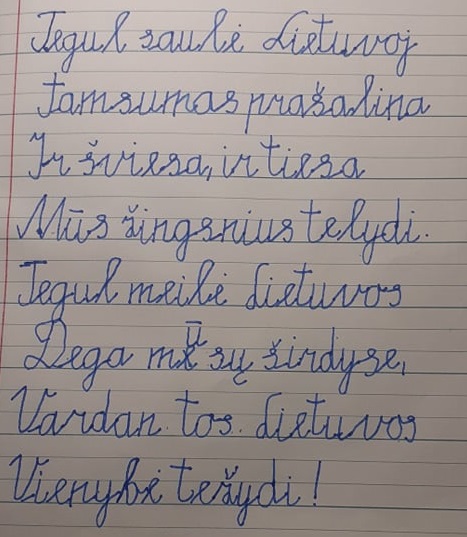 Tegul saulė Lietuvoj
Tamsumas prašalina
Ir šviesa, ir tiesa
Mūs žingsnius telydi.
Tegul meilė Lietuvos
Dega mūsų širdyse,
Vardan tos Lietuvos
Vienybė težydi!